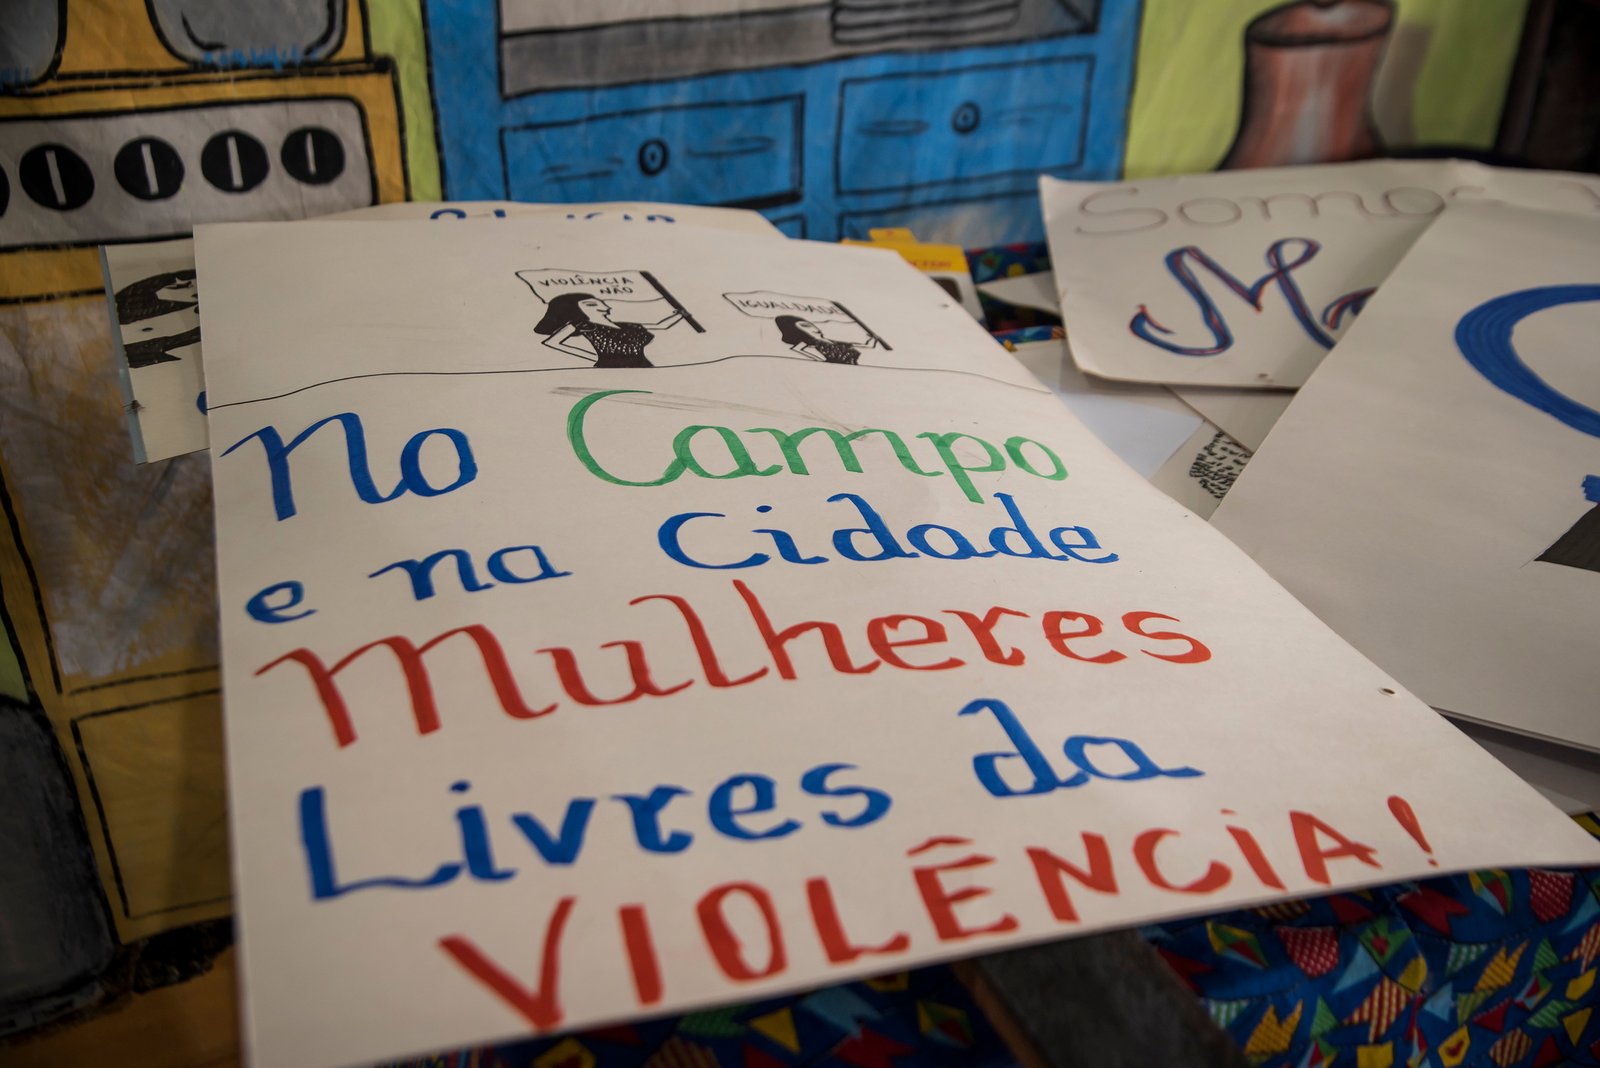 VIOLÊNCIA
NÃO
IGUALDADE
No Campo
e na Cidade
Mulheres
Livres da
VIOLÊNCiA!
Somos